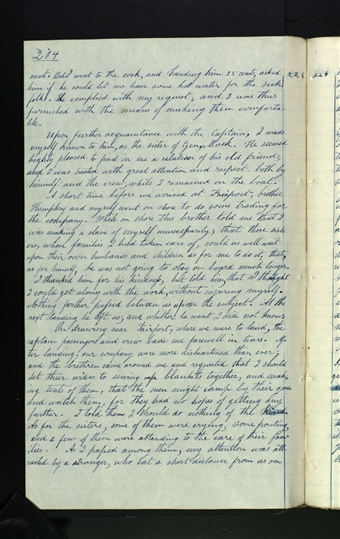 204
ment. But I went to the cook, and handing him 25 cents, asked
him if he could let me have some hot water for the sick
folks. He complied with my request, and I was thus
furnished with the means of making them comforta-
ble.
Upon further acquaintance with the Captain, I made
myself known to him, as the sister of Gen. Mack. He seemed
highly pleased to find in me a relative of his old friend,
and I was treated with great attention and respect, both by
himself and the crew, while I remained on the boat.
A short time before we arrived at Fairport, brother
Humphry and myself went on shore to do some trading for
the company. While on shore this brother told me that I
was making a slave of myself unnecessarily; that those sist-
ers, whose families I had taken care of, could as well wait
upon their own husbands and children as for me to do it; that,
as for himself, he was not going to stay on board much longer.
I thanked him for his kindness, but told him, that I thought
I could get along with the work, without injuring myself.
Nothing further passed between us upon the subject. At the
next landing he left us, and whither he went I did not know.
On drawing near Fairport, where we were to land, the
captain passengers and crew bade me farewell in tears. Af-
ter landing, our company were more disheartened than ever;
and the brethren came around me and requested that I should
set their wives to sewing up blankets together, and mak-
ing tents of them, that the men might camp by their goods
and watch them, for they had no hopes of getting any
further. I told them I should do nothing of the kind.
As for the sisters, some of them were crying, some pouting,
and a few of them were attending to the care of their fam-
ilies. As I passed among them, my attention was att-
racted by a stranger, who sat a short distance from us on